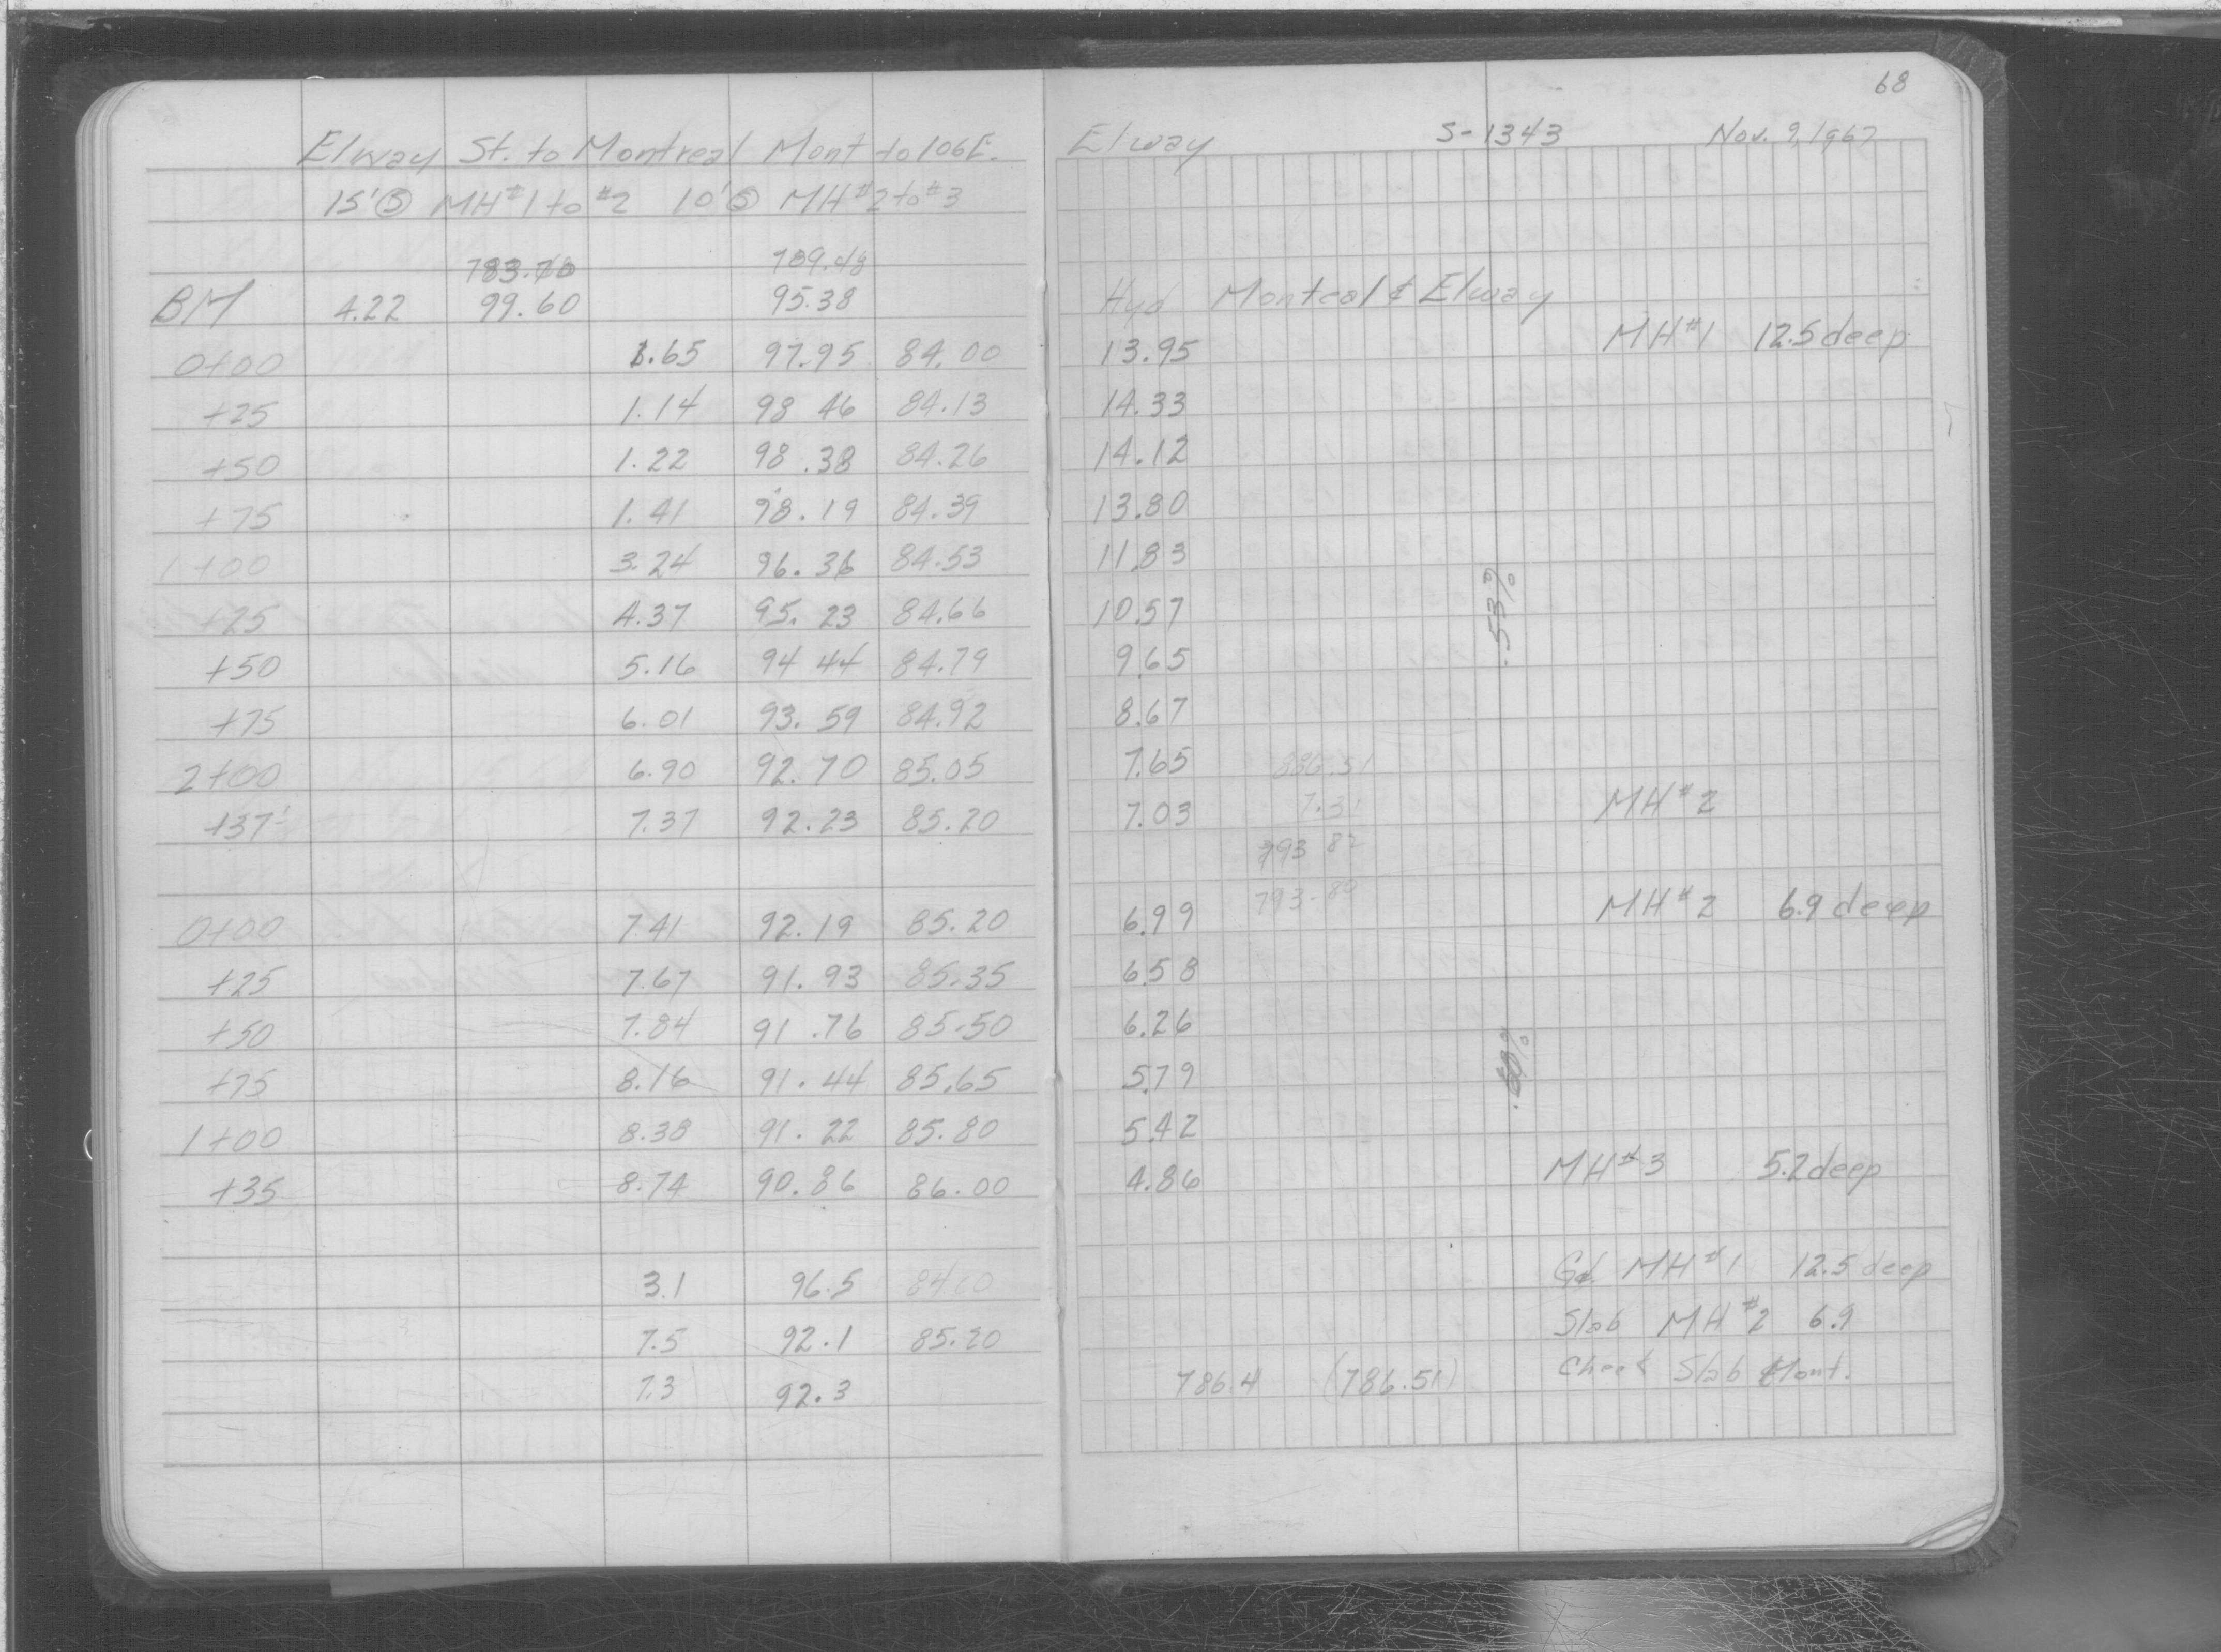 68
Elway St. to Montreal Mont to 106E.
15' Ⓢ MH#1 to #2 10' Ⓢ MH#2 to #3
783.70 789.48
BM 4.22 99.60 95.38
0+00 1.65 97.95 84.00
+25 1.14 98 46 84.13
+50 1.22 98.38 84.26
+75 1.41 98.19 84.39
1+00 3.24 96.36 84.53
+25 4.37 95.23 84.66
+50 5.16 94 44 84.79
+75 6.01 93.59 84.92
2+00 6.90 92.70 85.05
+37 7.37 92.23 85.20
0+00 7.41 92.19 85.20
+25 7.67 91.93 85.35
+50 7.84 91.76 85.50
+75 8.16 91.44 85.65
1+00 8.38 91.22 85.80
+35 8.74 90.86 86.00
3.1 96.5 84.00
7.5 92.1 85.20
7.3 92.3
Elway S-1343 Nov. 9, 1967
Hyd Montreal & Elway
13.95 MH#1 12.5 deep
14.33
14.12
13.80
11.83
.53%
10.57
9.65
8.67
7.65 886.51
7.03 7.31 MH#2
793 82
6.99 793.80 MH#2 6.9 deep
6.58
6.26
.60%
5.79
5.42
4.86 MH#3 5.2 deep
Gd. MH#1 12.5 deep
Slab MH#2 6.9
786.4 (786.51) Check Slab Mont.